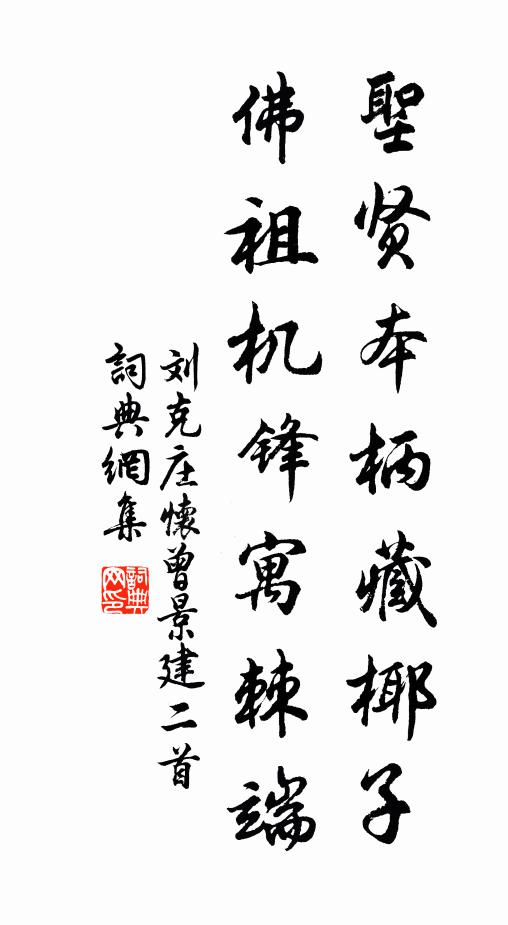 聖贤本柄藏椰子
佛祖机锋寓棘端
刘克庄懷曾景建二首
詞典網集
詞典网印